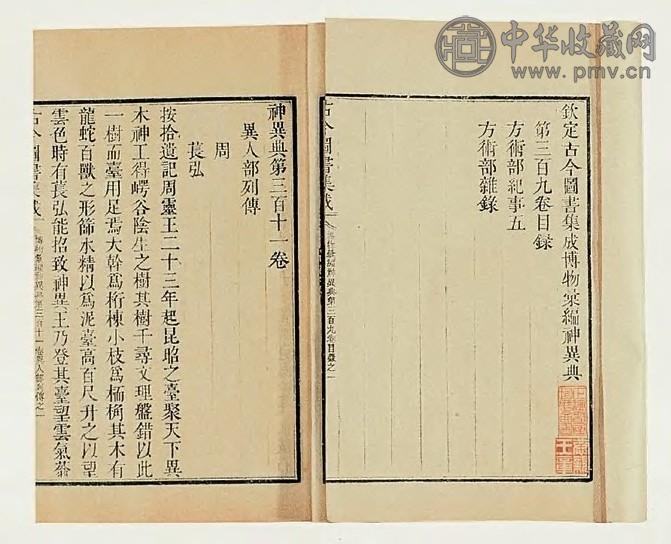 中华收藏网
www.pmv.cn
欽定古今圖書集成博物彙編神異典
第三百九卷目録
方術部紀事五
方術部雜錄
古今圖書集成
神異典第三百十一卷
異人部列傳
周
萇弘
按拾遺記周靈王二十三年起昆昭之臺聚天下異
木神工得崿谷陰生之樹其樹千尋文理盤錯以此
一樹而臺用足焉大幹爲桁棟小枝爲栭桷其木有
龍蛇百獸之形篩水精以爲泥臺高百尺升之以望
雲色時有萇弘能招致神異王乃登其臺望雲氣蓊
古今圖書集成